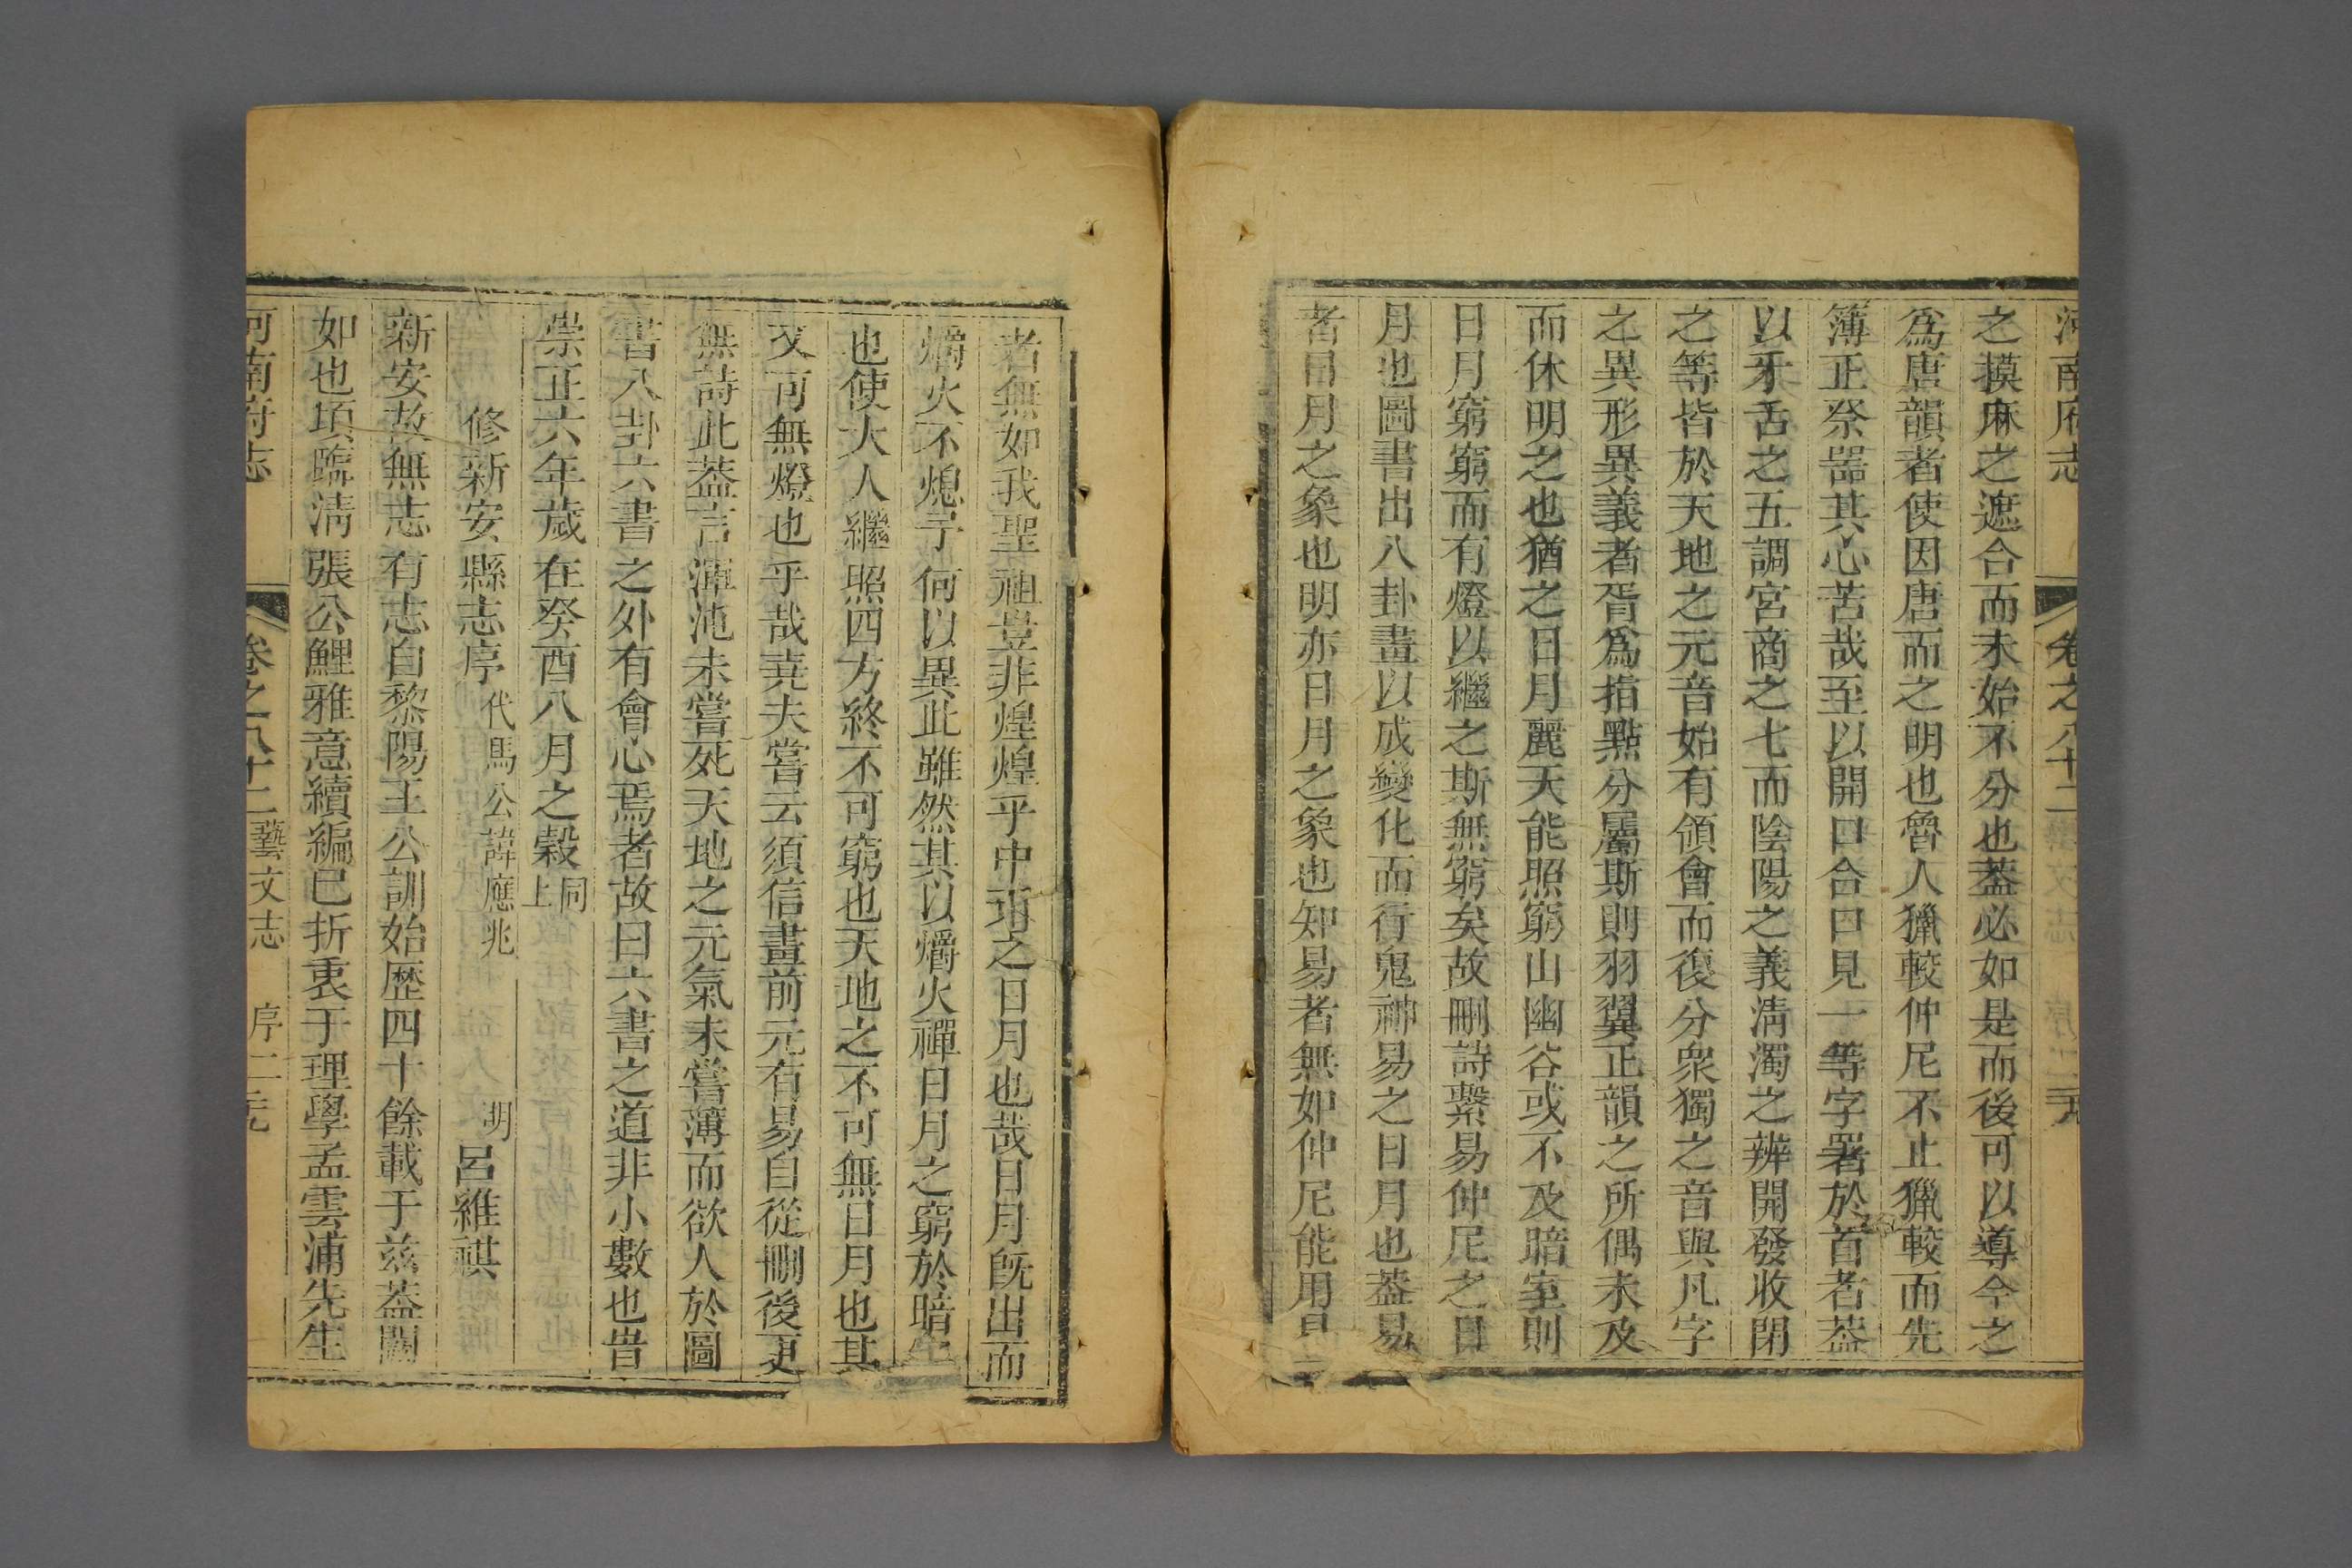 河南府志 卷之八十二 藝文志 序二 
之摸麻之遮合而未始不分也葢必如是而後可以導今之
爲唐韻者使因唐而之明也魯人獵較仲尼不止獵較而先
簿正祭器其心苦哉至以開口合口見一等字署於首者葢
以牙舌之五調宮商之七而陰陽之義清濁之辨開發收閉
之等皆於天地之元音始有領會而復分衆獨之音與凡字
之異形異義者胥爲指點分屬斯則羽翼正韻之所偶未及
而休明之也猶之日月麗天能照窮山幽谷或不及暗室則
日月窮窮而有燈以繼之斯無窮矣故刪詩繫易仲尼之日
月也圖書出八卦畫以成變化而行鬼神易之日月也葢易
者日月之象也明亦日月之象也知易者無如仲尼能用易
者無如我聖祖豈非煌煌乎中丏之日月也哉日月旣出而
爝火不熄亏何以異此雖然其以爝火禪日月之窮於暗室
也使大人繼照四方終不可窮也天地之不可無日月也其
又可無燈也乎哉堯夫嘗云須信畫前元有易自從刪後更
無詩此葢言渾沌未嘗死天地之元氣未嘗薄而欲人於圖
書八卦六書之外有會心焉者故曰六書之道非小數也旹
崇正六年歲在癸酉八月之穀同上
修新安縣志序 代馬公諱應兆 明 呂維祺
新安故無志有志自黎陽王公訓始歷四十餘載于茲葢闕
如也項臨清張公鯉雅意續編已折衷于理學孟雲浦先生
河南府志 卷之八十二 藝文志 序二